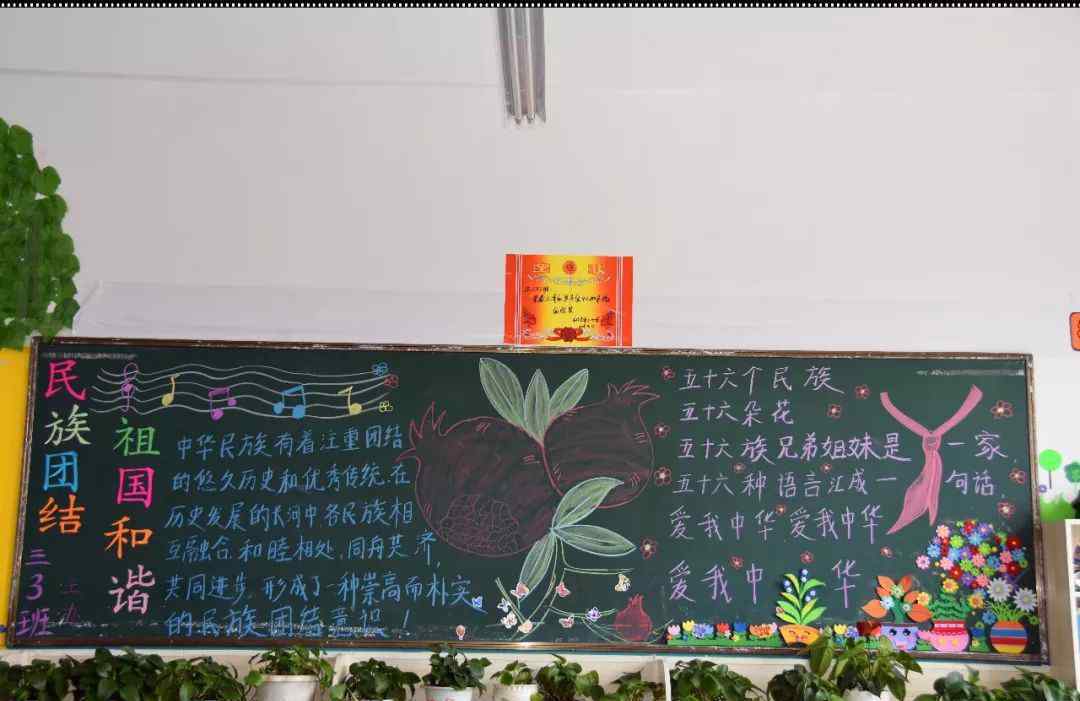 民族团结
祖国和谐
三3班
中华民族有着注重团结
的悠久历史和优秀传统.在
历史发展的长河中各民族相
互融合.和睦相处.同舟共济,
共同进步.形成了一种崇高而朴实
的民族团结意识!
五十六个民族
五十六朵花
五十六族兄弟姐妹是一家
五十六种语言汇成一句话
爱我中华爱我中华
爱我中华